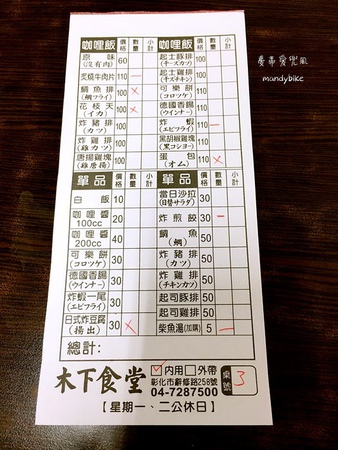 咖哩飯 價格 數量 小計
原味(沒有肉) 60
炙燒牛肉片 110 一
鯛魚排(鯛フライ) 100 x
花枝天(イカ) 100 x
炸豬排(カツ) 100
炸雞排(雞カツ) 100
唐揚雞塊(雞唐揚) 100
咖哩飯 價格 數量 小計
起士豚排(チーズカツ) 110
起士雞排(チズチキン) 110
可樂餅(コロツケ) 100
德國香腸(ウインナー) 100
炸蝦(エビフライ) 110 一
黑胡椒雞塊(黑コショー) 100
蛋包(オム) 110 x
單品 價格 數量 小計
白飯 10
咖哩醬100cc 20
咖哩醬200cc 40
可樂餅(コロツケ) 30
德國香腸(ウインナー) 30
炸蝦一尾(エビフライ) 30
日式炸豆腐(揚出) 30 x
單品 價格 數量 小計
當日沙拉(日替サラダ) 30
炸煎餃 30 一
鯛魚(鯛) 50
炸豬排(カツ) 50
炸雞排(チキンカツ) 50
起司豚排 50
起司雞排 50
柴魚湯(加購) 5 一
總計:
木下食堂
✓內用 外帶
彰化市辭修路258號
04-7287500
桌號 3
【星期一、二公休日】
mandybike